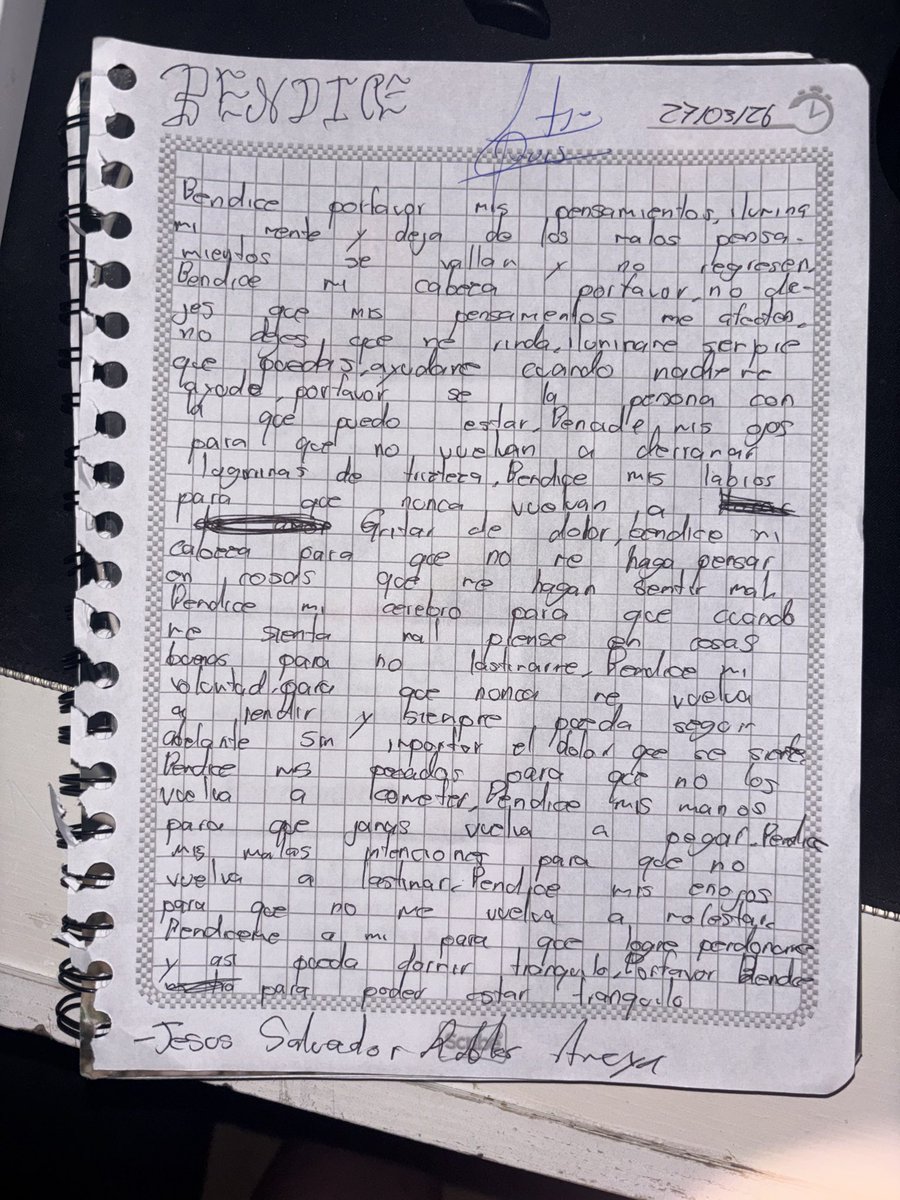 BENDICE
27/03/26
Bendice porfavor mis pensamientos, ilumina
mi mente y deja de los malos pensa-
mientos se vallan y no regresen,
Bendice mi cabeza porfavor, no de-
jes que mis pensamentos me afecten,
no dejes que me rinda, iluminare sempre
que puedas, ayudare cuando nadie me
ayude, porfavor se la persona con
la que puedo estar, Bendice mis ojos
para que no vuelvan a derramar
lagrimas de tristeza, Bendice mis labios
para que nonca vuelvan a
Gritar de dolor, bendice mi
cabeza para que no me haga pensar
en cosas que me hagan sentir mal,
Bendice mi cerebro para que cuando
me sienta mal piense en cosas
buenas para no lastimarme, Bendice mi
voluntad, para que nonca me vuelva
a rendir y siempre pueda seguir
adelante sin importar el dolor que se siente
Bendice mis pecados para que no los
vuelva a cometer, Bendice mis manos
para que jamas vuelva a pegar, Bendice
mis malas intenciones para que no
vuelva a lastimar, Bendice mis enojos
para que no me vuelva a molestar,
Bendiceme a mi para que logre perdonarme
y asi pueda dormir tranquilo, Porfavor Bendice
para poder estar tranquilo
-Jesus Salvador